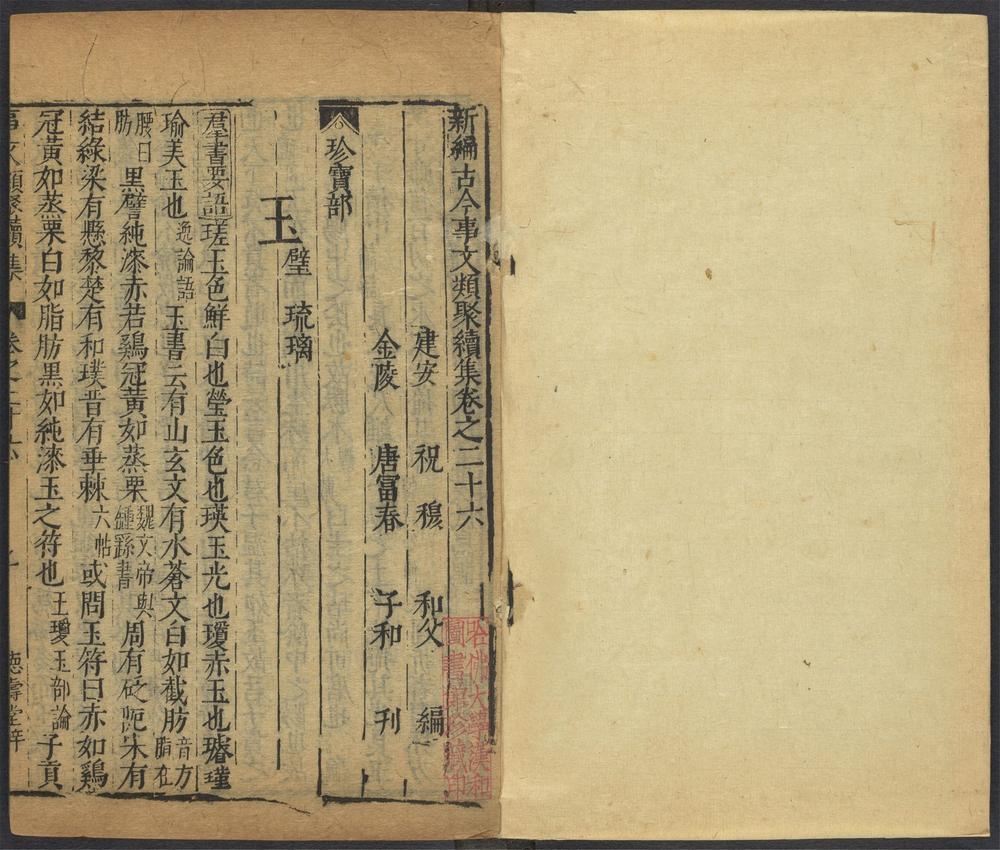 新編古今事文類聚續集卷之二十六
建安 祝 穆 和父 編
金陵 唐富春 子和 刊
珍寶部
玉 璧 琉璃
羣書要語瑳玉色鮮白也瑩玉色也瑛玉光也瓊赤玉也璠瑾
瑜美玉也逸論語玉書云有山玄文有水蒼文白如截肪音方脂在
腰曰肪黑譬純漆赤若鷄冠黃如蒸栗魏文帝與鍾繇書周有砥砨宋有
結綠梁有懸黎楚有和璞晋有垂棘六帖或問玉符曰赤如鷄
冠黃如蒸栗白如脂肪黑如純漆玉之符也王瓊玉部論子貢
事文類聚續集 卷之二十六 一 德壽堂梓
哈佛大學漢和圖書館珍藏印